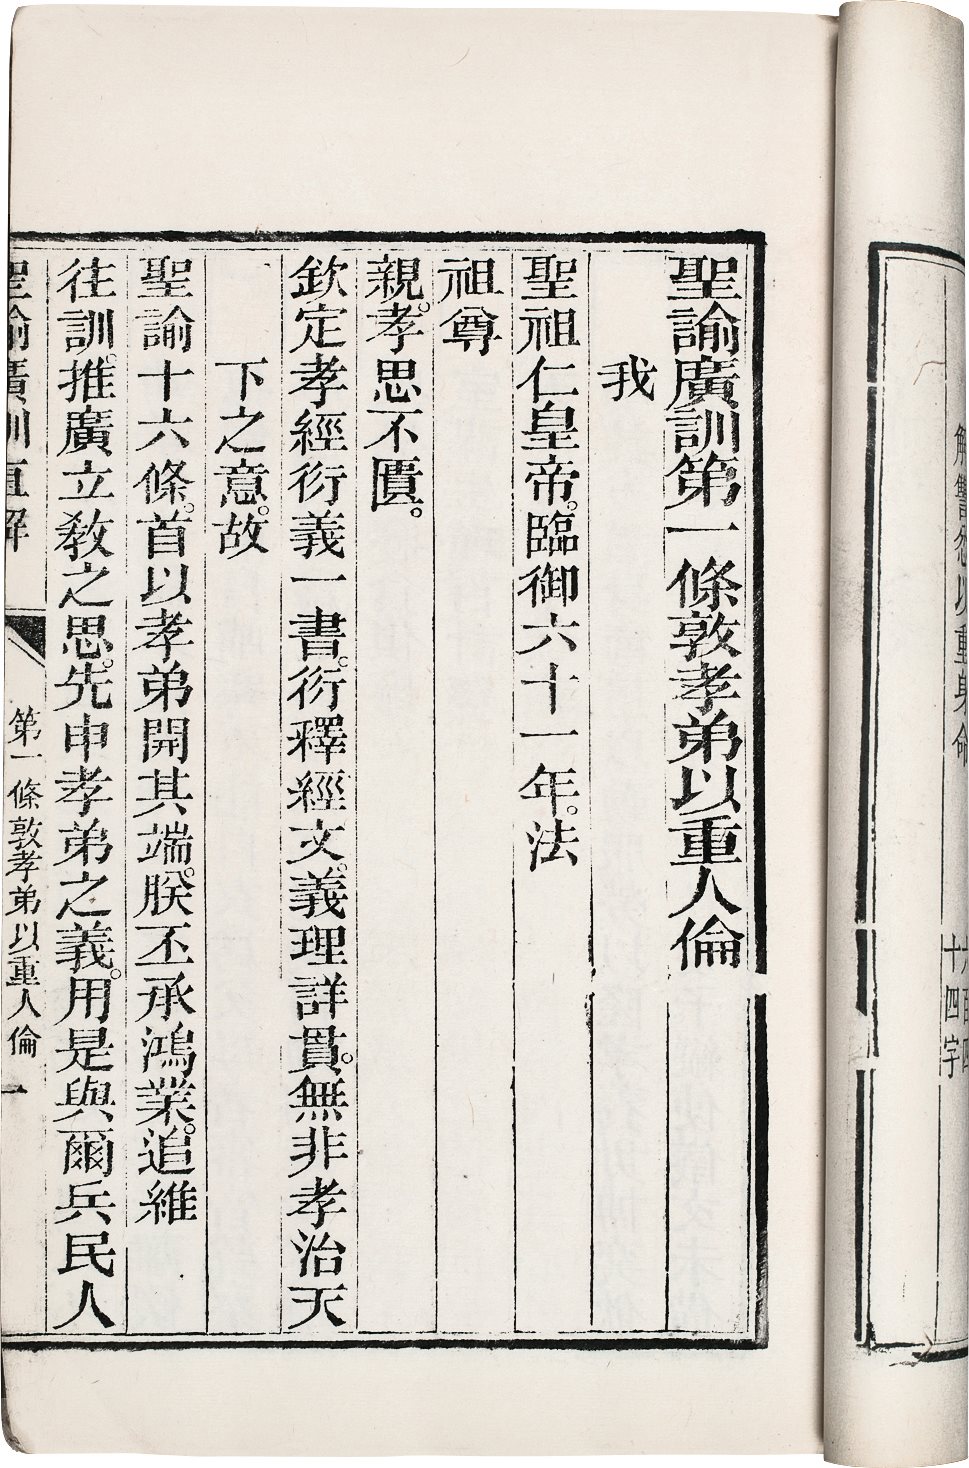 聖諭廣訓第一條敦孝弟以重人倫
我
聖祖仁皇帝。臨御六十一年。法
祖尊
親。孝思不匱。
欽定孝經衍義一書。衍釋經文。義理詳貫。無非孝治天
下之意。故
聖諭十六條。首以孝弟開其端。朕丕承鴻業。追維
往訓。推廣立教之思。先申孝弟之義。用是與爾兵民人
聖諭廣訓直解
第一條敦孝弟以重人倫
一
解讐忿以重身命
十四字